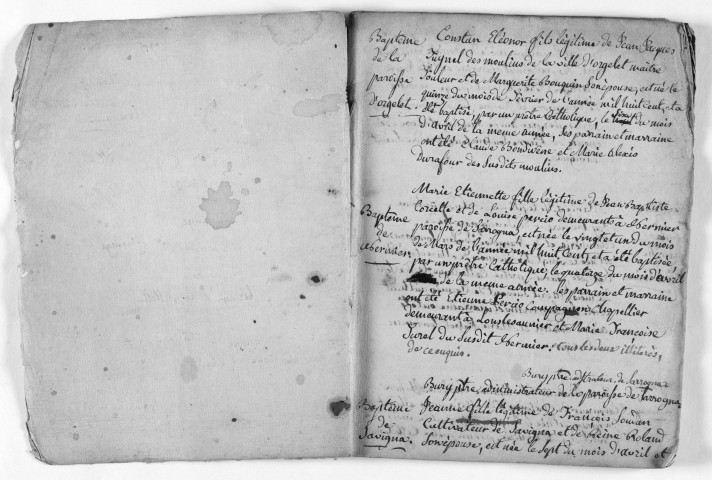 Baptême
de la
paroisse
d'orgelet.
Constan Eléonor fils légitime de Jean Jacques
des moulins de la ville d'orgelet maître
et de Marguerite Bouquin son épouse, est né le
quinze du mois de février de l'année mil huit cent, et a
été baptisé, par un prêtre Catholique, le du mois
d'avril de la meme année, Ses parain et marraine
ont été Claude et Marie Alexis
Durafour des Susdits moulins.
Baptême
de
Marie Etiennette fille légitime de Jean Baptiste
et de Louise percio demeurant à
paroisse de Sarogna, est née le vingt et un du mois
de Mars de l'année mil huit Cent, et a été baptisée
par un prêtre Catholique, le quatorze du mois d'avril
de la meme année. Ses parain et marraine
ont été Etienne Percio compagnon
demeurant à Lonslesaunier et Marie Francoise
du Susdit tous les deux illiterés,
de ce enquis.
Bury ptre. de Sarrogna
Bury ptre, administrateur de la paroisse de Sarrogna
Baptême
de
Savigna.
Jeanne fille légitime de François
Cultivateur de Savigna et de Reine Roland
Son épouse, est née le Sept du mois d'avril et